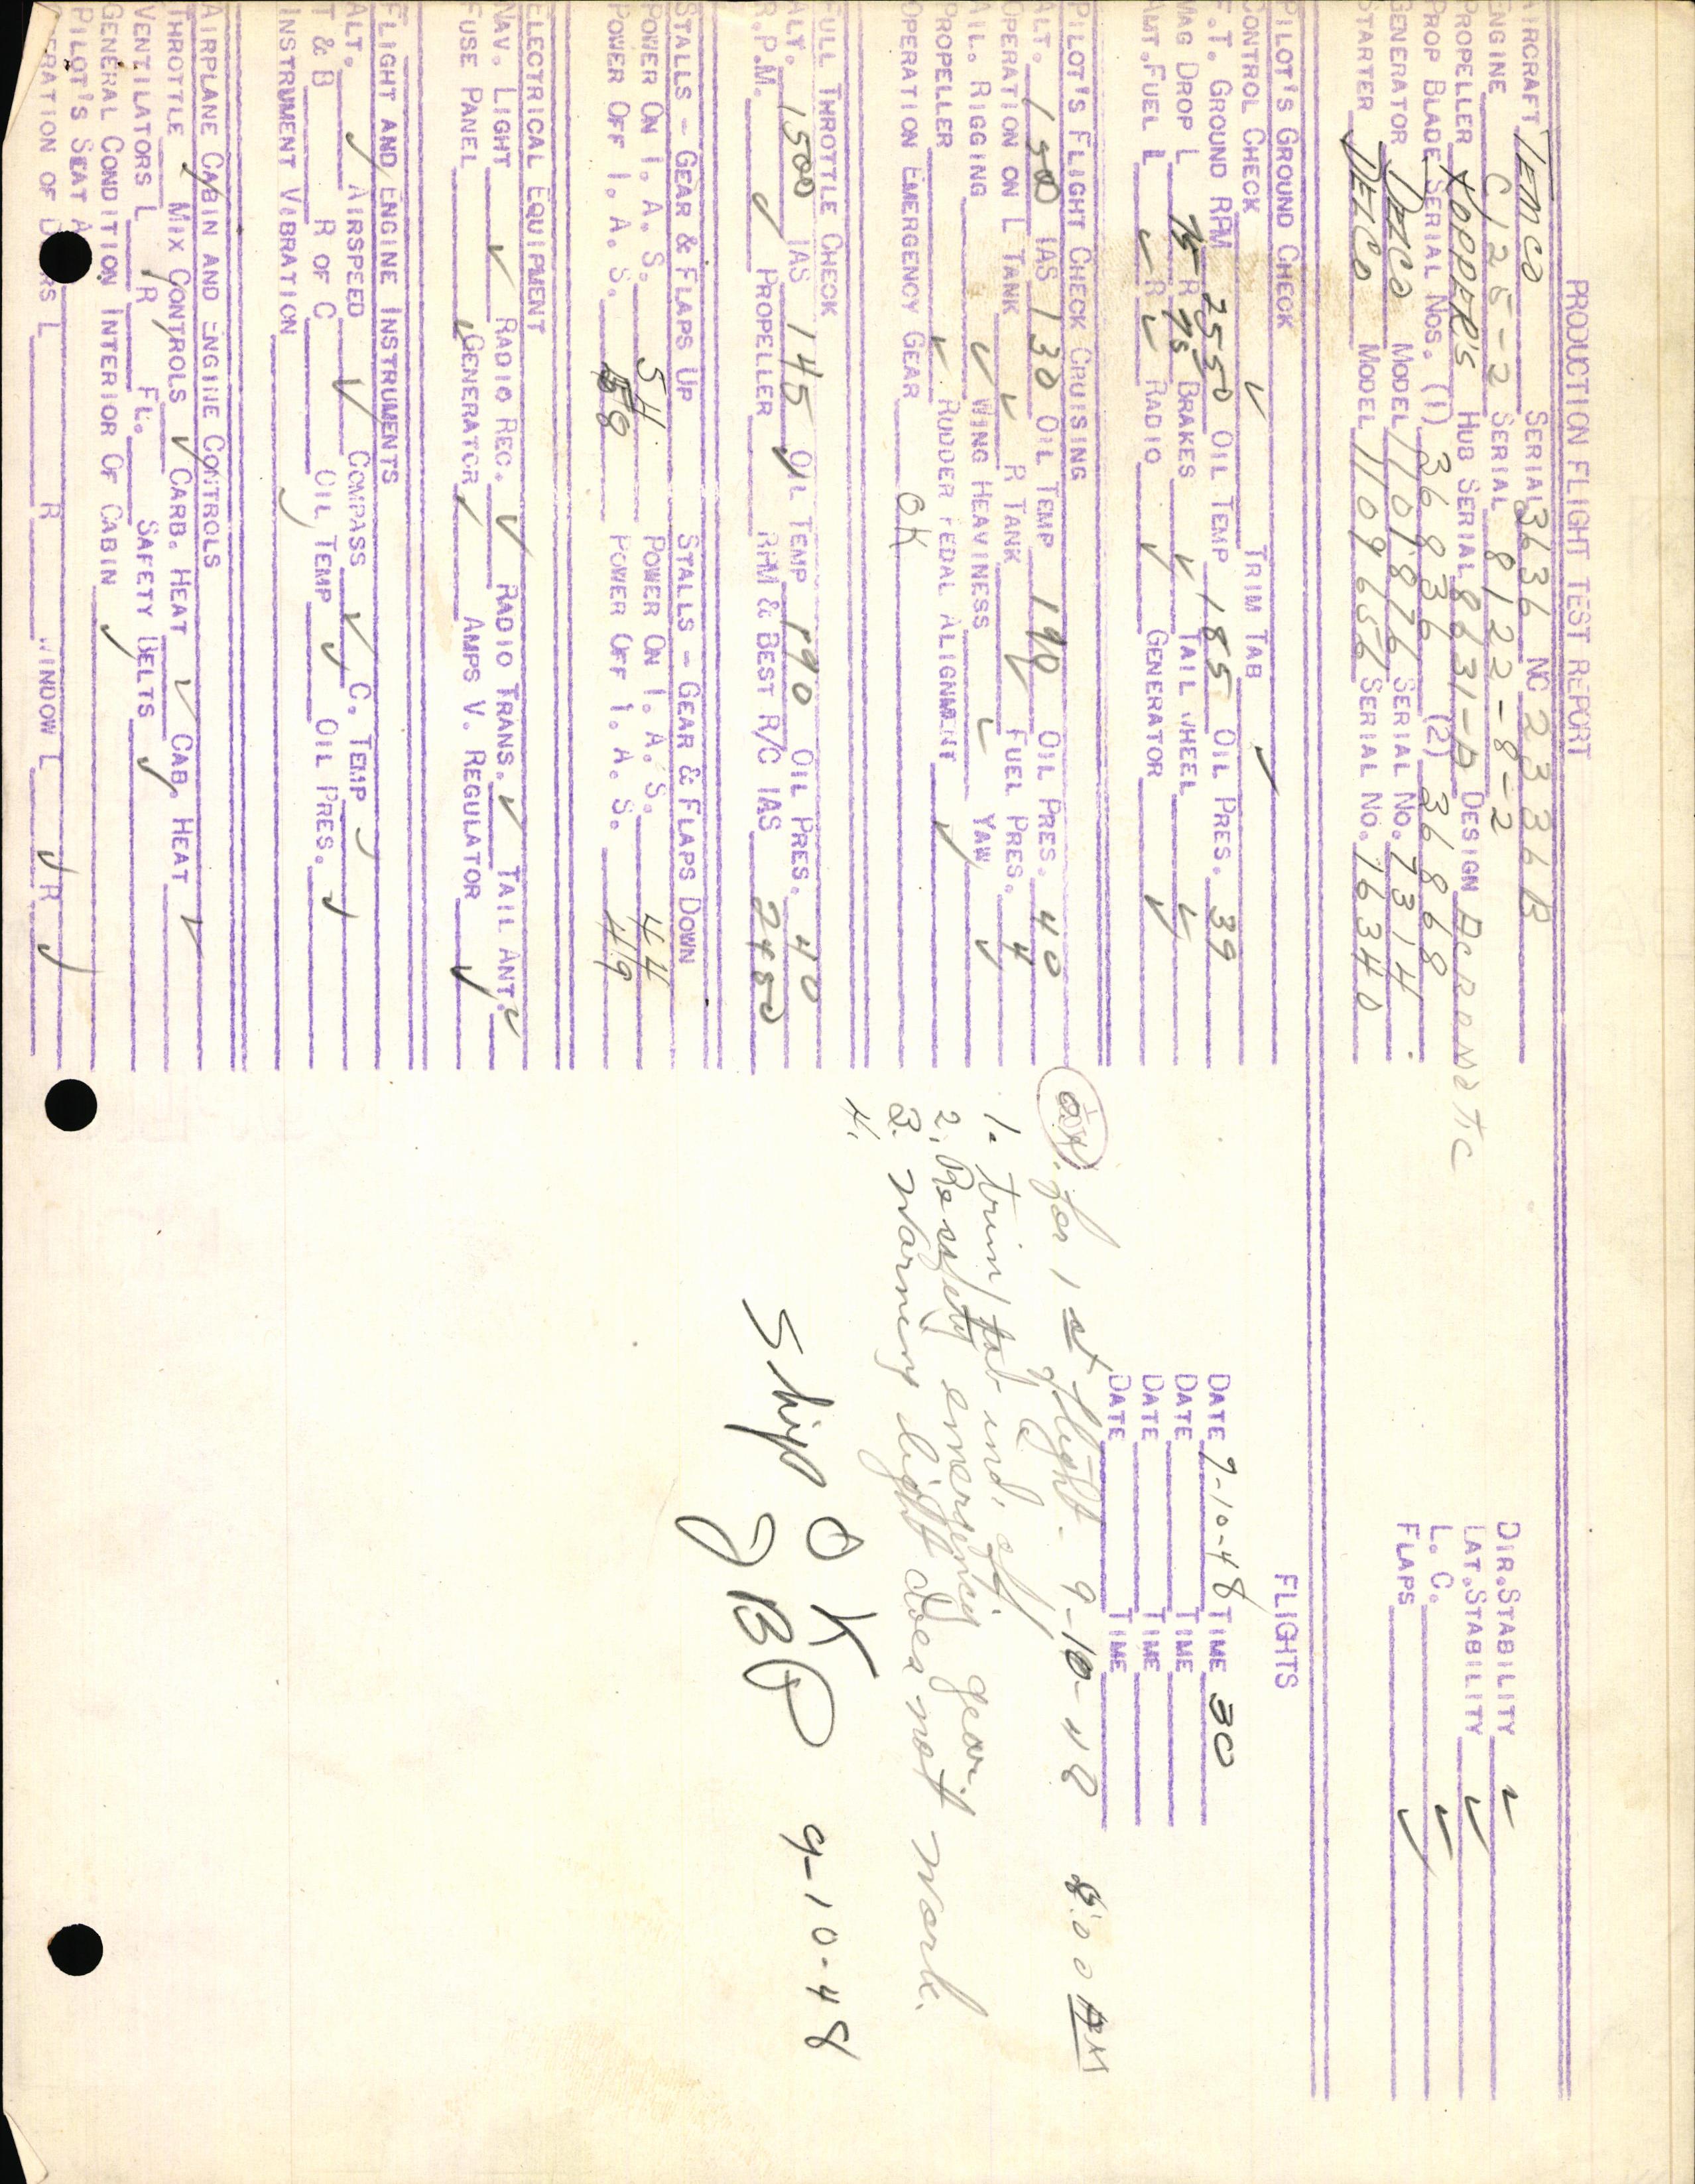 PRODUCTION FLIGHT TEST REPORT
AIRCRAFT TEMCO SERIAL 3636 NC 2336B
ENGINE C125-2 SERIAL 8122-8-2
PROPELLER KOPPERS HUB SERIAL 8631-D DESIGN AEROMATIC
PROP BLADE SERIAL NOS. (1) 36836 (2) 36868
GENERATOR DELCO MODEL 1101876 SERIAL NO. 7314
STARTER DELCO MODEL 1109656 SERIAL NO. 16340
DIR. STABILITY ✓
LAT. STABILITY ✓
L. C. ✓
FLAPS ✓
PILOT'S GROUND CHECK
CONTROL CHECK ✓ TRIM TAB ✓
F.T. GROUND RPM 2550 OIL TEMP 185 OIL PRES. 39
MAG DROP L 75 R 75 BRAKES ✓ TAIL WHEEL ✓
AMT. FUEL L ✓ R ✓ RADIO ✓ GENERATOR ✓
FLIGHTS
DATE 9-10-48 TIME 30
DATE TIME
DATE TIME
DATE TIME
PILOT'S FLIGHT CHECK CRUISING
ALT. 1500 IAS 130 OIL TEMP 190 OIL PRES. 40
OPERATION ON L TANK ✓ R TANK ✓ FUEL PRES. 4
AIL. RIGGING ✓ WING HEAVINESS ✓ YAW ✓
PROPELLER ✓ RUDDER PEDAL ALIGNMENT ✓
OPERATION EMERGENCY GEAR OK
OK for 1st flight. 9-10-48 8:00 AM
1. trim tab ind. off.
2. Resafety emergency gear.
3. Warning light does not work.
4.
FULL THROTTLE CHECK
ALT. 1500 IAS 145 OIL TEMP 190 OIL PRES. 40
R.P.M. ✓ PROPELLER RPM & BEST R/C IAS 2450
Ship OK 9-10-48
STALLS - GEAR & FLAPS UP STALLS - GEAR & FLAPS DOWN
POWER ON I. A. S. 54 POWER ON I. A. S. 44
POWER OFF I. A. S. 58 POWER OFF I. A. S. 49
ELECTRICAL EQUIPMENT
NAV. LIGHT ✓ RADIO REC. ✓ RADIO TRANS. ✓ TAIL ANT. ✓
FUSE PANEL ✓ GENERATOR ✓ AMPS V. REGULATOR ✓
FLIGHT AND ENGINE INSTRUMENTS
ALT. ✓ AIRSPEED ✓ COMPASS ✓ C. TEMP ✓
T & B R OF C OIL TEMP ✓ OIL PRES. ✓
INSTRUMENT VIBRATION ✓
AIRPLANE CABIN AND ENGINE CONTROLS
THROTTLE ✓ MIX CONTROLS ✓ CARB. HEAT ✓ CAB. HEAT ✓
VENTILATORS L R FL. SAFETY BELTS ✓
GENERAL CONDITION INTERIOR OF CABIN ✓
PILOT'S SEAT
OPERATION OF DOORS L R WINDOW L ✓ R ✓